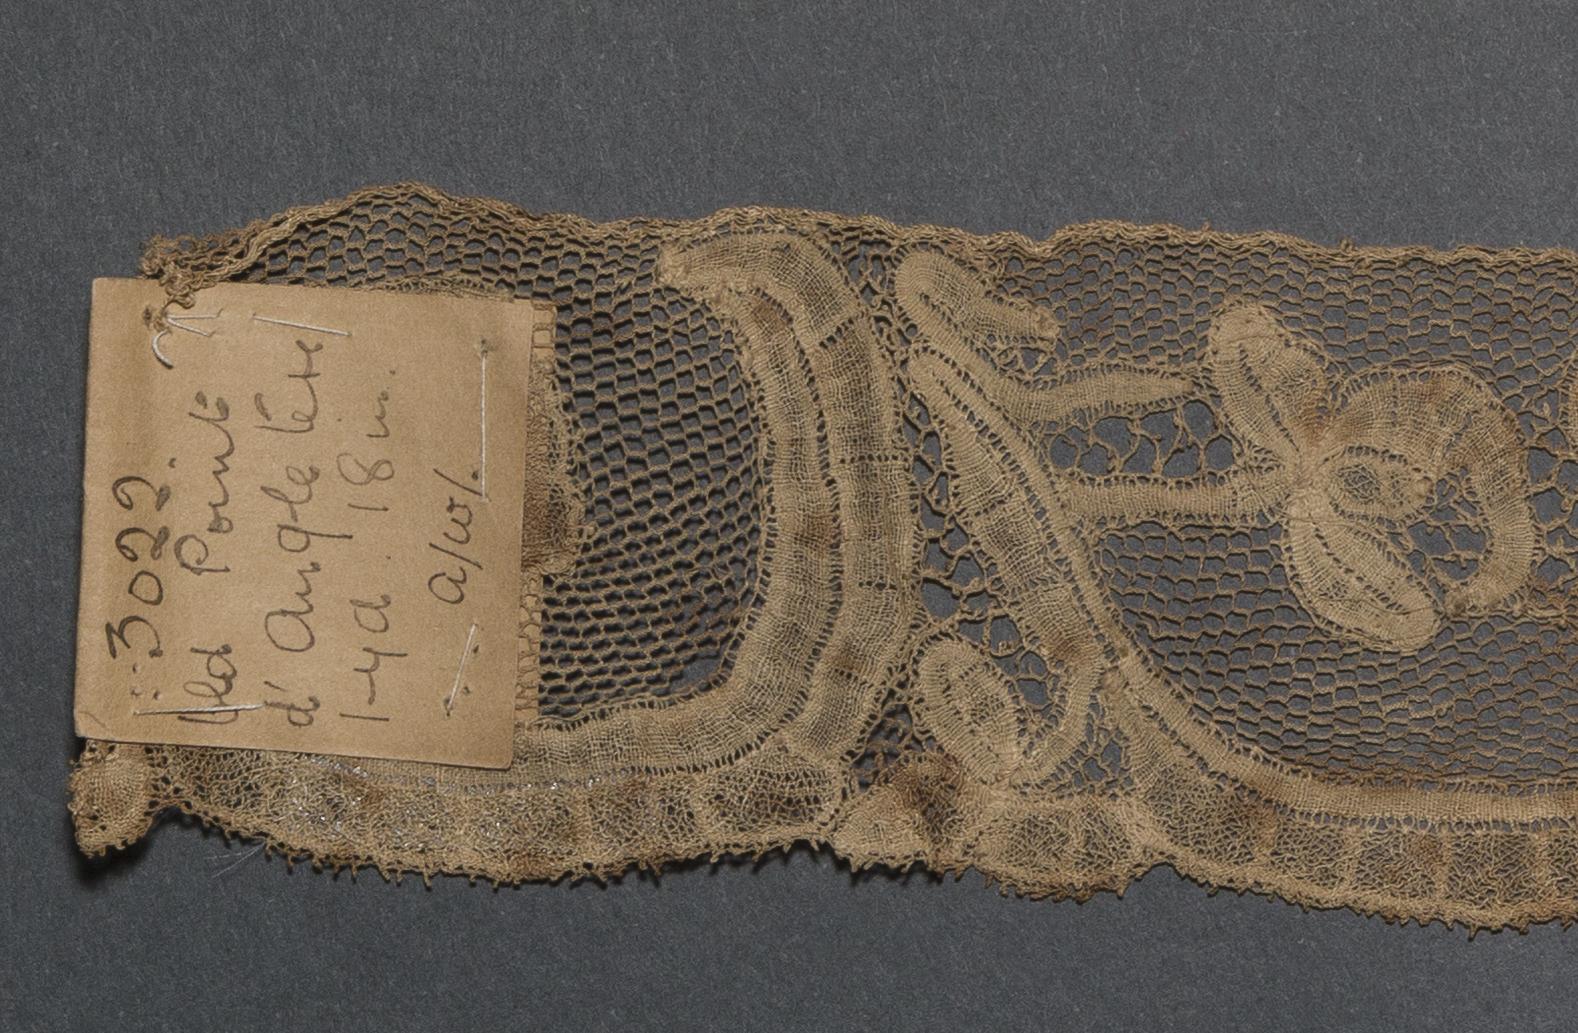 3022
Old Point
d'Angleterre
1 yd. 18 in.
a/w/.